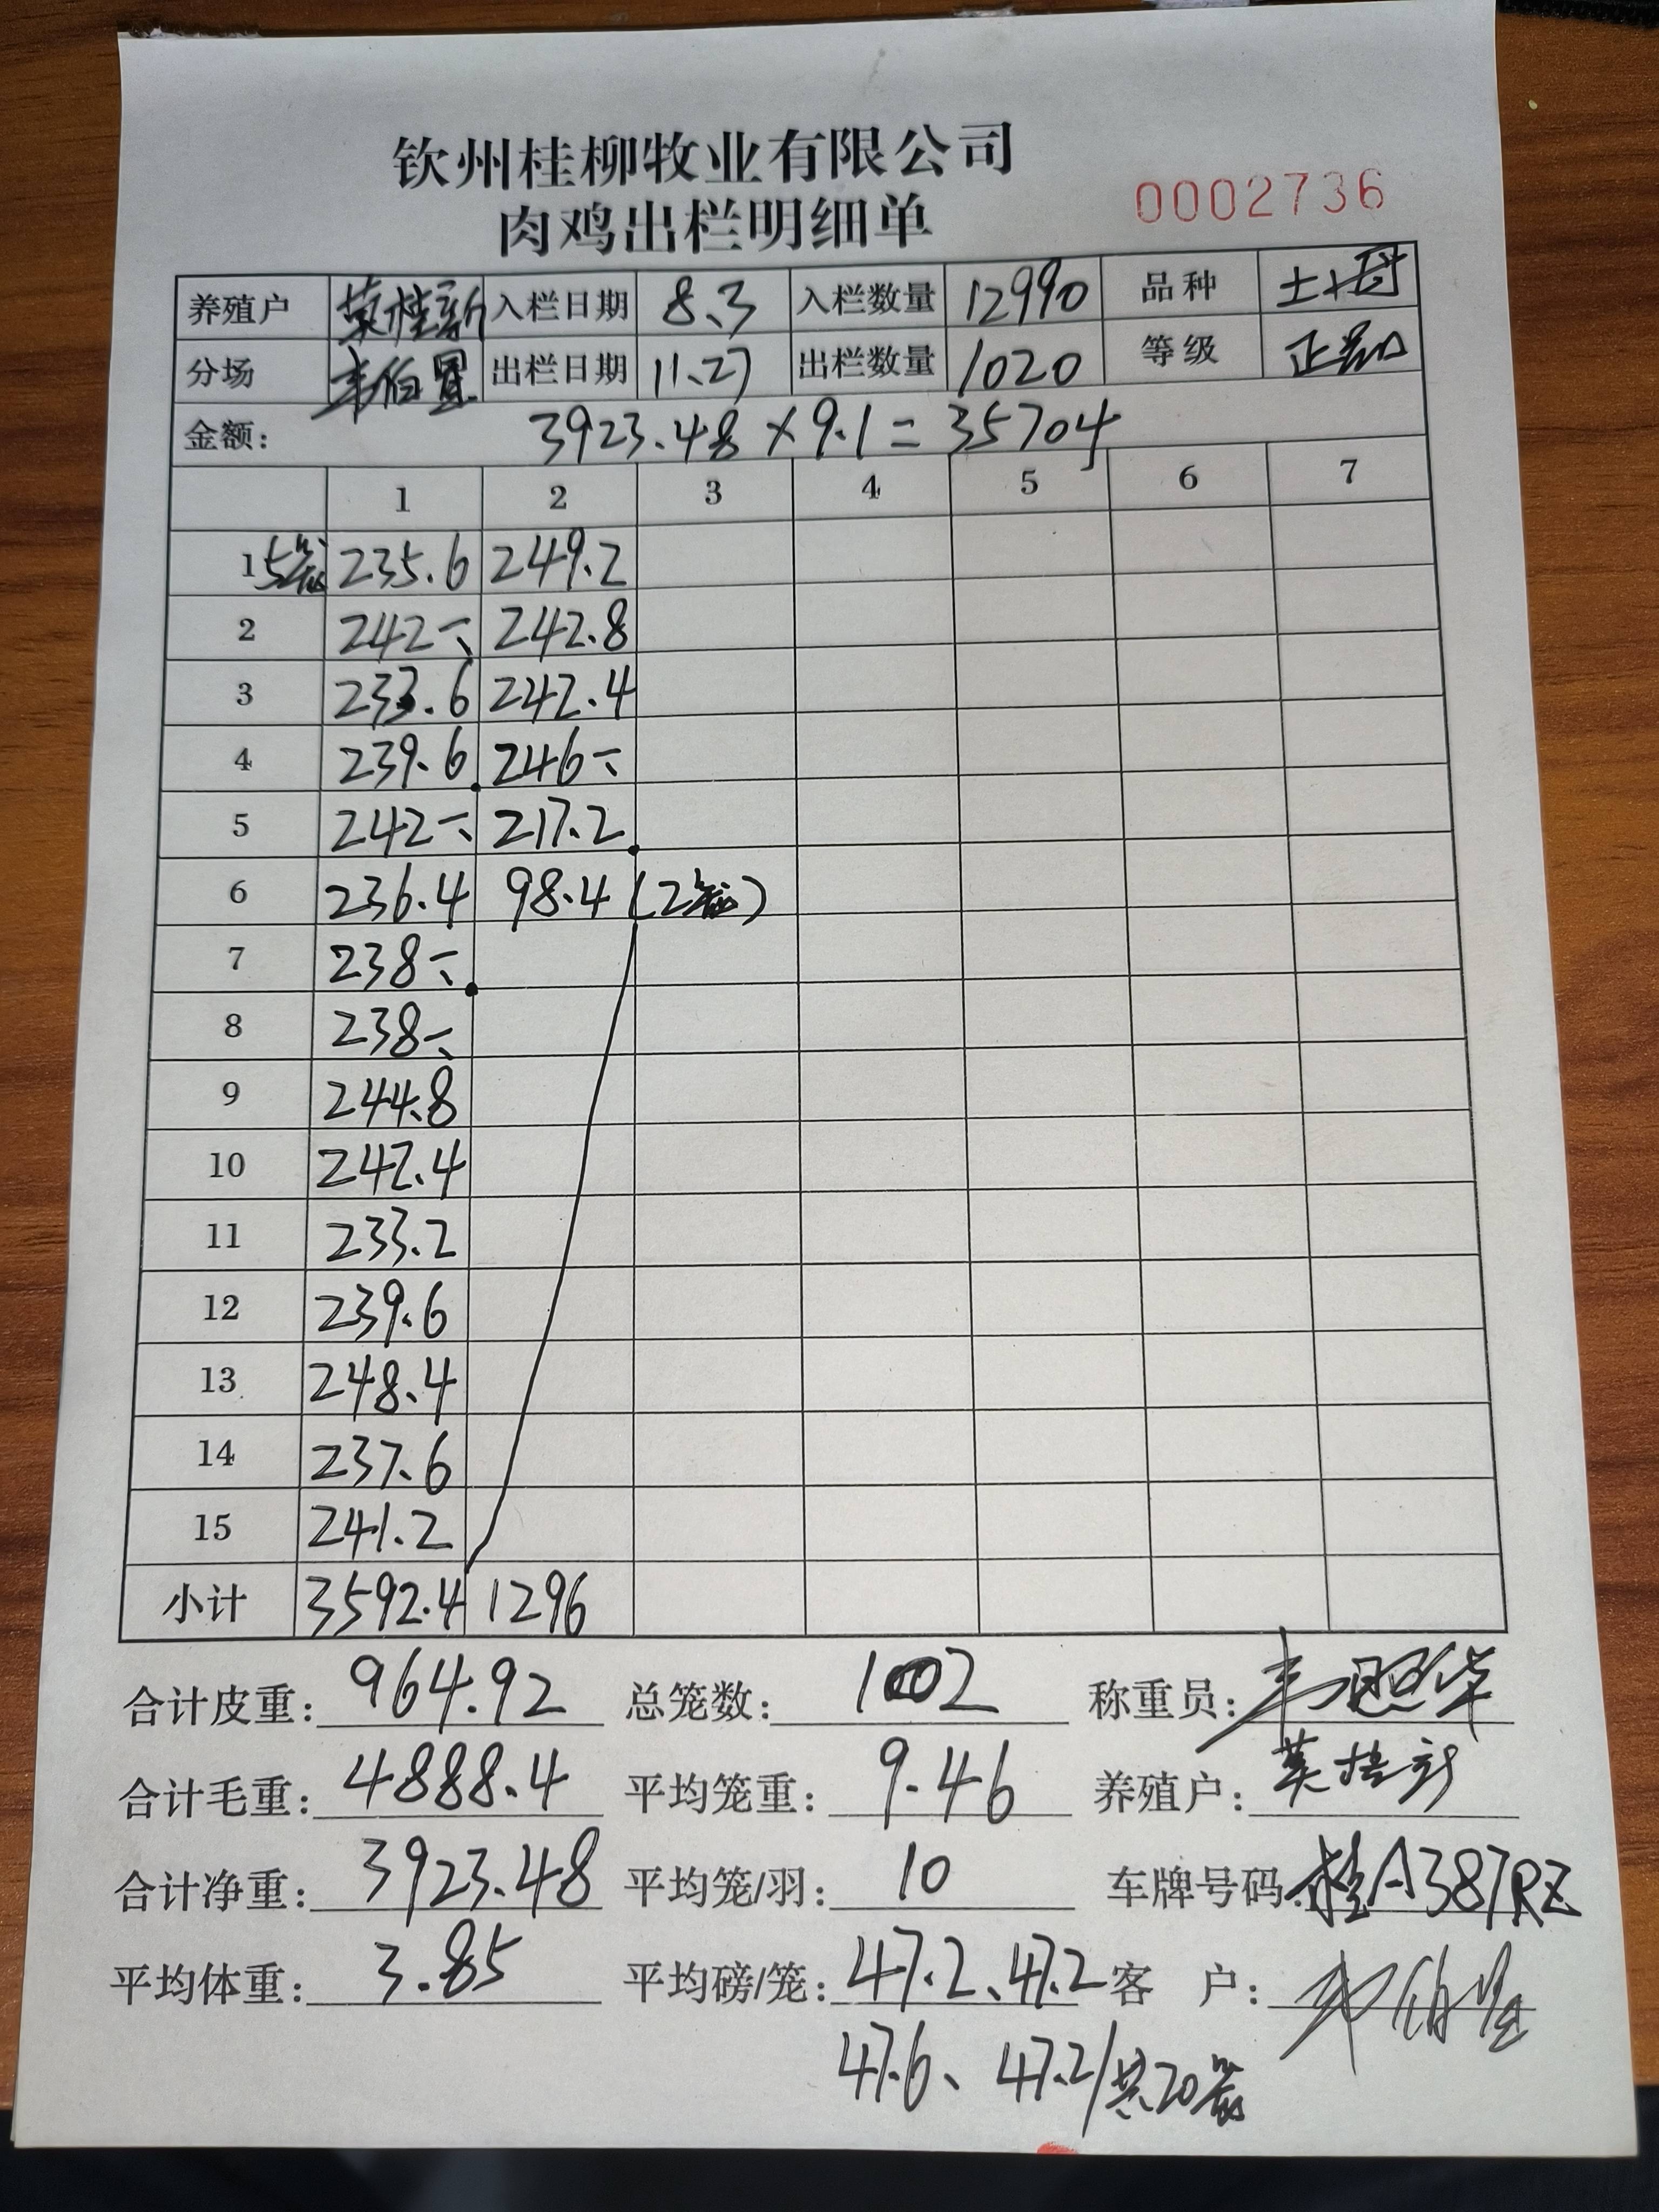 钦州桂柳牧业有限公司
肉鸡出栏明细单
0002736
养殖户 入栏日期 8.3 入栏数量 12990 品种 土
分场 韦伯 出栏日期 11.27 出栏数量 1020 等级 正
金额: 3923.48 × 9.1 = 35704
1 2 3 4 5 6 7
1 5笼 235.6 249.2
2 242-、 242.8
3 233.6 242.4
4 239.6 246-、
5 242-、 217.2
6 236.4 98.4 (2笼)
7 238-、
8 238-、
9 244.8
10 242.4
11 233.2
12 239.6
13 248.4
14 237.6
15 241.2
小计 3592.4 1296
合计皮重: 964.92 总笼数: 102 称重员: 韦照华
合计毛重: 4888.4 平均笼重: 9.46 养殖户:
合计净重: 3923.48 平均笼/羽: 10 车牌号码: 桂A387RZ
平均体重: 3.85 平均磅/笼: 47.2、47.2 客 户:
47.6、47.2/共20笼